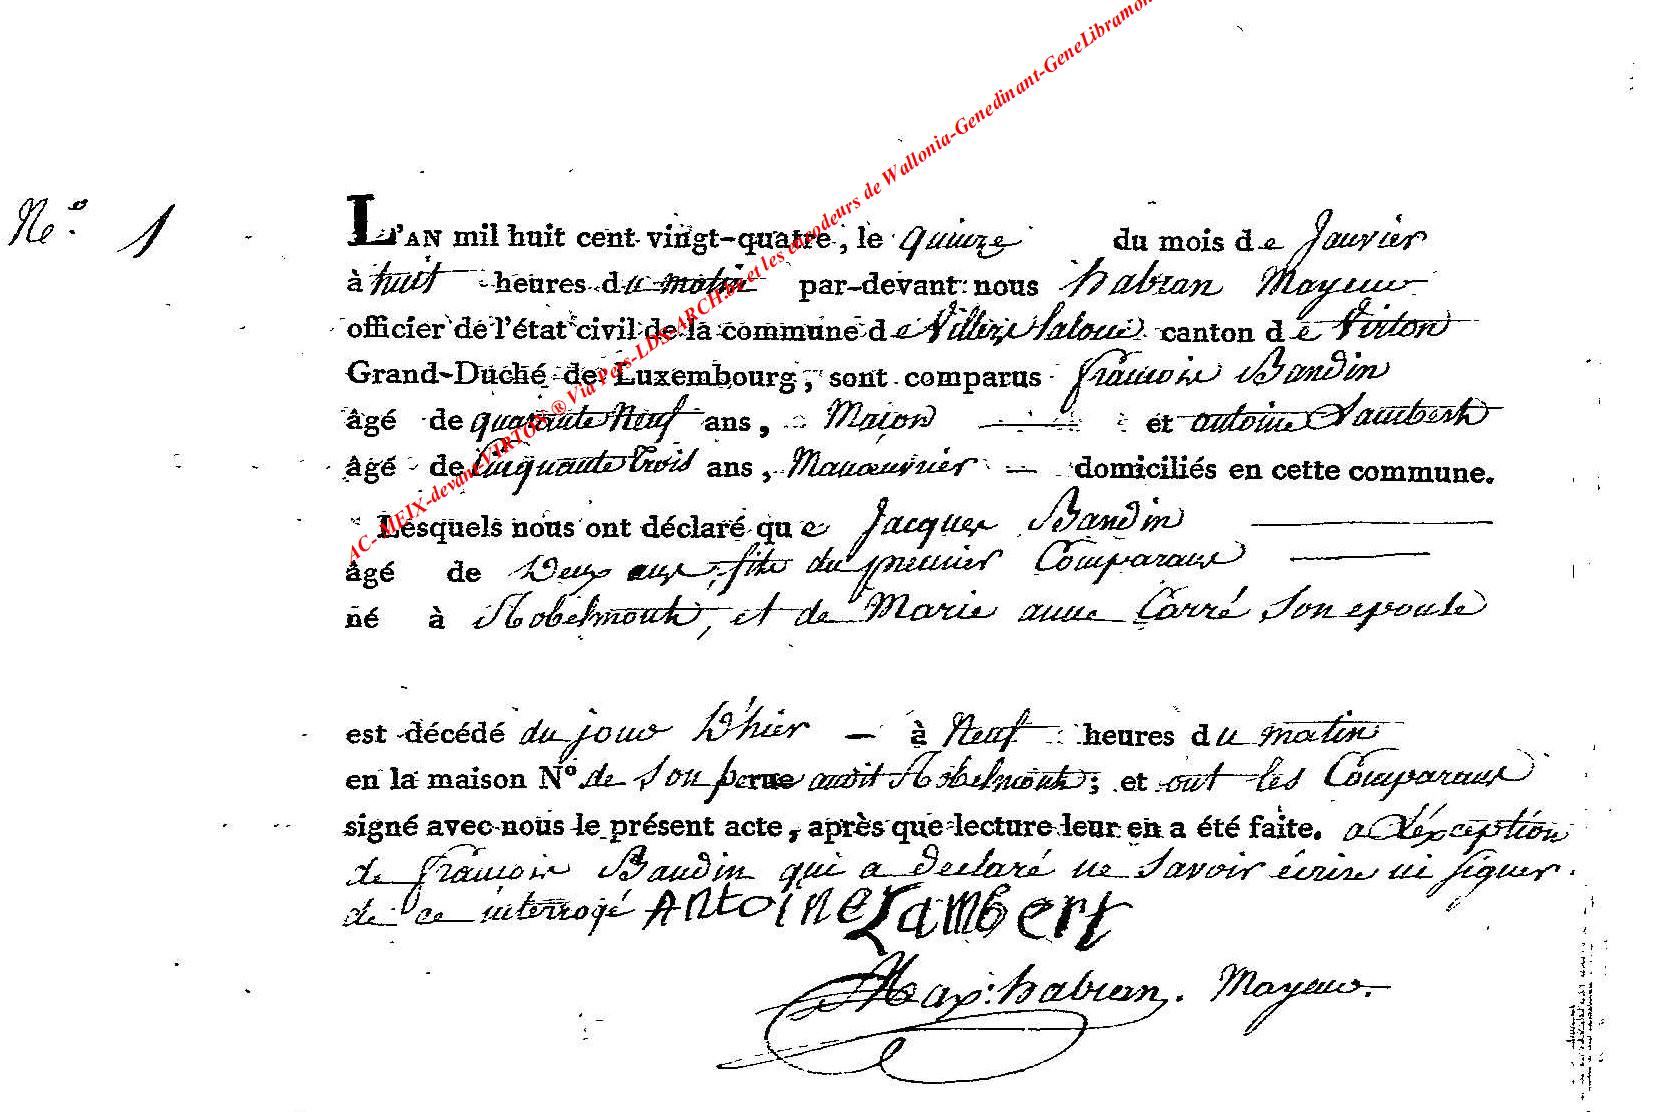 AC- MEIX-devant-VIRTON ® Via Pers-LDS-ARCH.be et les encodeurs de Wallonia-Genedinant-GeneLibramon
No. 1
L'AN mil huit cent vingt-quatre, le quinze du mois de Janvier
à huit heures du matin par-devant nous habran Mayeur
officier de l'état civil de la commune de Villers laloue canton de Virton
Grand-Duché de Luxembourg, sont comparus francois Baudin
âgé de quarante Neuf ans, Maçon et antoine Lambert
âgé de Cinquante trois ans, Manœuvrier — domiciliés en cette commune.
Lesquels nous ont déclaré que Jacques Baudin
âgé de Deux ans, fils du premier Comparant
né à Robelmont, et de Marie anne Carré Son epouse
est décédé du jour D'hier — à Neuf heures du matin
en la maison No de Son pere audit Robelmont; et ont les Comparans
signé avec nous le présent acte, après que lecture leur en a été faite. a L'éxception
de francois Baudin qui a declaré ne Savoir écrire ni signer.
de ce interrogé Antoine Lambert
Max: habran. Mayeur.